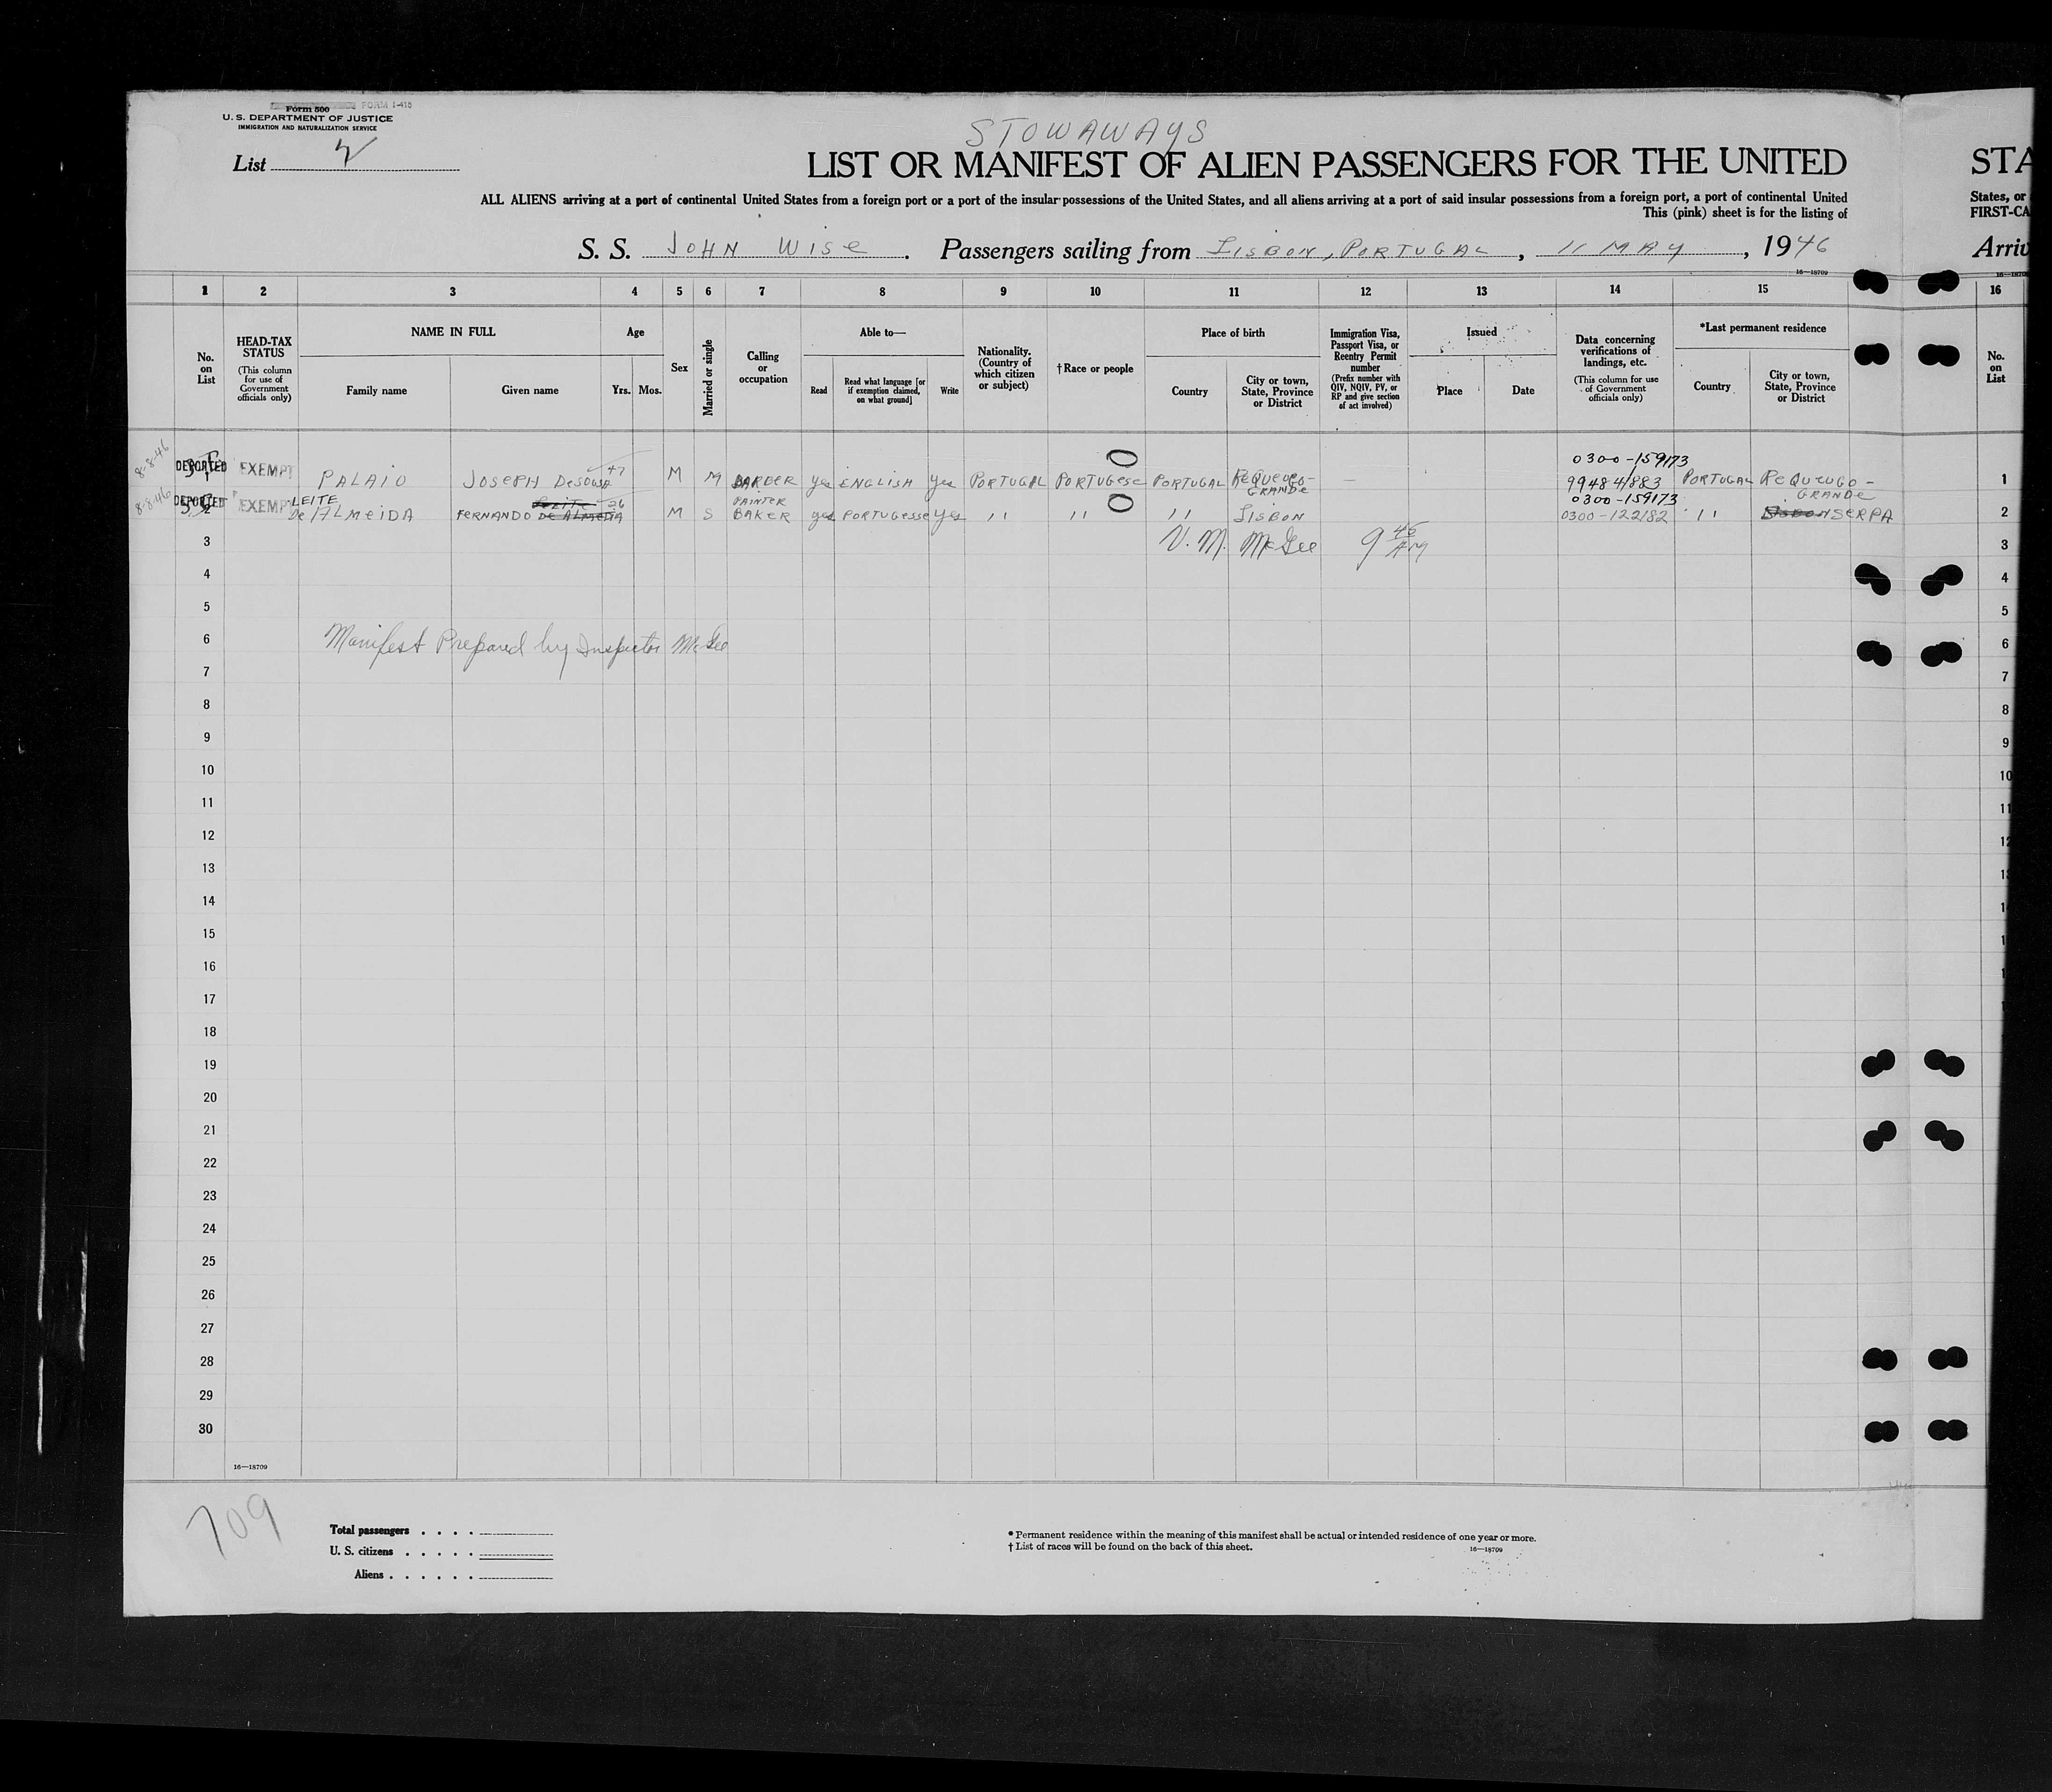 Form 500 FORM I-415
U. S. DEPARTMENT OF JUSTICE
IMMIGRATION AND NATURALIZATION SERVICE
List
STOWAWAYS
LIST OR MANIFEST OF ALIEN PASSENGERS FOR THE UNITED
STA
ALL ALIENS arriving at a port of continental United States from a foreign port or a port of the insular possessions of the United States, and all aliens arriving at a port of said insular possessions from a foreign port, a port of continental United
States, or
This (pink) sheet is for the listing of
FIRST-CA
S. S. JOHN WISE. Passengers sailing from LISBON, PORTUGAL, 11 MAY, 1946
Arriv
16—18709
1 2 3 4 5 6 7 8 9 10 11 12 13 14 15 16
No. on List
HEAD-TAX STATUS (This column for use of Government officials only)
NAME IN FULL
Family name
Given name
Age
Yrs. Mos.
Sex
Married or single
Calling or occupation
Able to—
Read
Read what language [or if exemption claimed, on what ground]
Write
Nationality. (Country of which citizen or subject)
†Race or people
Place of birth
Country
City or town, State, Province or District
Immigration Visa, Passport Visa, or Reentry Permit number (Prefix number with QIV, NQIV, PV, or RP and give section of act involved)
Issued
Place
Date
Data concerning verifications of landings, etc. (This column for use of Government officials only)
*Last permanent residence
Country
City or town, State, Province or District
No. on List
8-8-46 DEPORTED 1 EXEMPT PALAIO JOSEPH DeSOUSA 47 M M BARBER yes ENGLISH yes PORTUGAL PORTUGESE PORTUGAL GRANDE — 0300-159173 99484/883 PORTUGAL REQUEUGO-GRANDE 1
8-8-46 DEPORTED 2 EXEMPT LEITE De ALMEIDA FERNANDO LEITE DE ALMEDIA 26 M S PAINTER BAKER yes PORTUGESSE yes '' '' '' LISBON 0300-159173 0300-122182 '' LISBON SERPA 2
3 V. M. McGee 9 45 AM 3
4 4
5 5
6 Manifest Prepared by Inspector McGee 6
7 7
8 8
9 9
10 10
11 11
12 12
13
14
15
16
17
18
19
20
21
22
23
24
25
26
27
28
29
30
16—18709
709
Total passengers . . . .
U. S. citizens . . . . .
Aliens . . . . . .
* Permanent residence within the meaning of this manifest shall be actual or intended residence of one year or more.
† List of races will be found on the back of this sheet.
16—18709